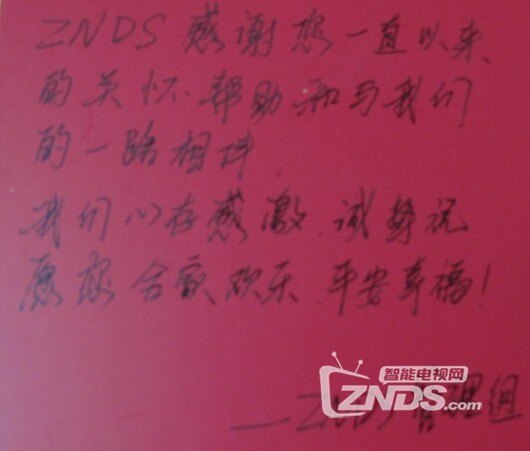 ZNDS 感谢您一直以来
的关怀、帮助和与我们
的一路相伴.
我们心存感激.诚挚祝
愿您合家欢乐.平安幸福!
智能电视网
ZNDS.com
—ZNDS管理组